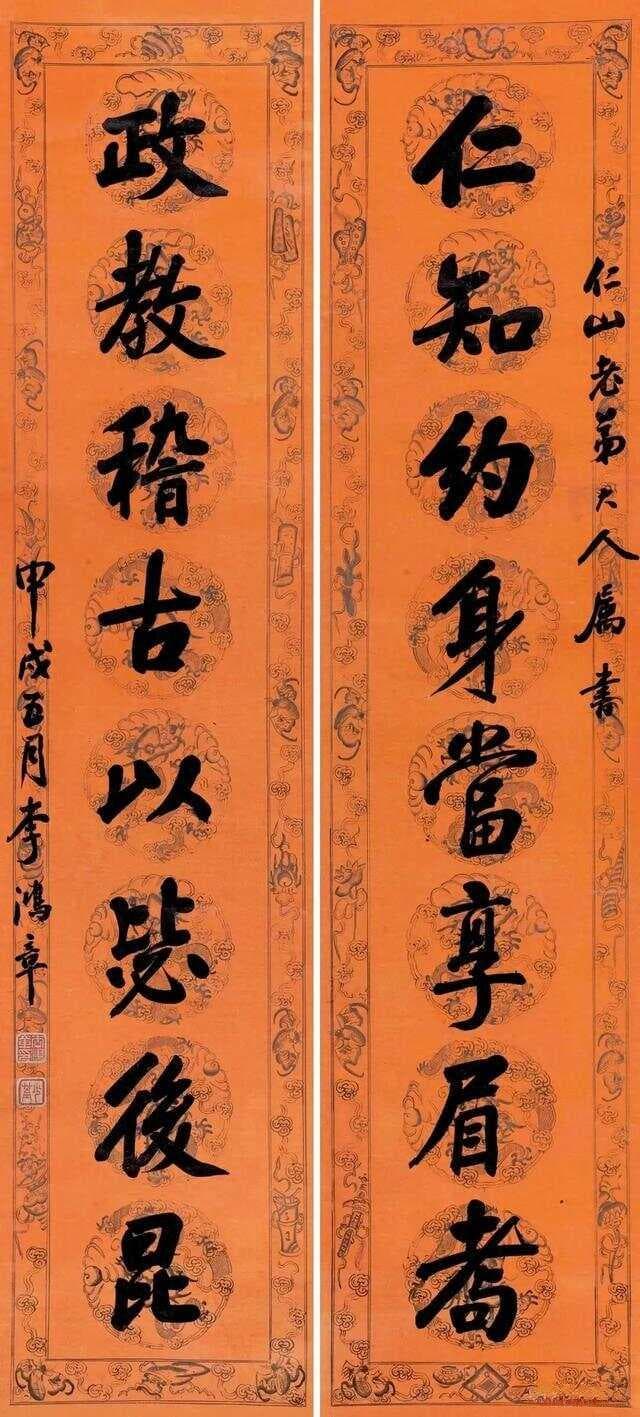 仁山老弟大人属書
仁知約身當享眉耇
政教稽古以毖後昆
甲戌五月李鴻章